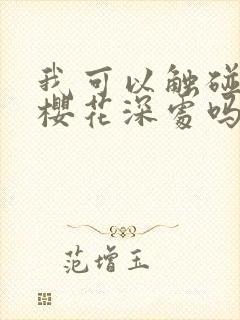 我可以触碰
樱花深处吗
范增玉